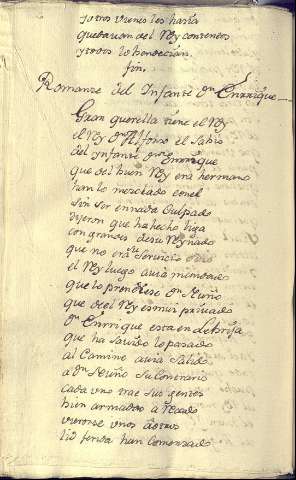 y otros vienes les haria
quedaron del Rey contentos
y todos lo bendecian.
fin.
Romanze del Infante Dn. Enrrique
Gran querella tiene el Rey
el Rey Dn. Alfonso el Sabio
del Infante Dn. Enrrique
que del buen Rey era hermano
han lo mezclado con el
sin ser en nada Culpado
Dizen que ha hecho liga
con grandes de su Reynado
que no era su servicio
el Rey luego avia mandado
que lo prendiese Dn. Nuño
que de el Rey es mui privado
Dn. Enrrique esta en Lebrija
que ha savido lo pasado
al Camino avia Salido
a Dn. Nuño Su Contrario
cada uno trae sus gentes
bien armados a recado
vieronse unos a otros
lid ferida han Comenzado